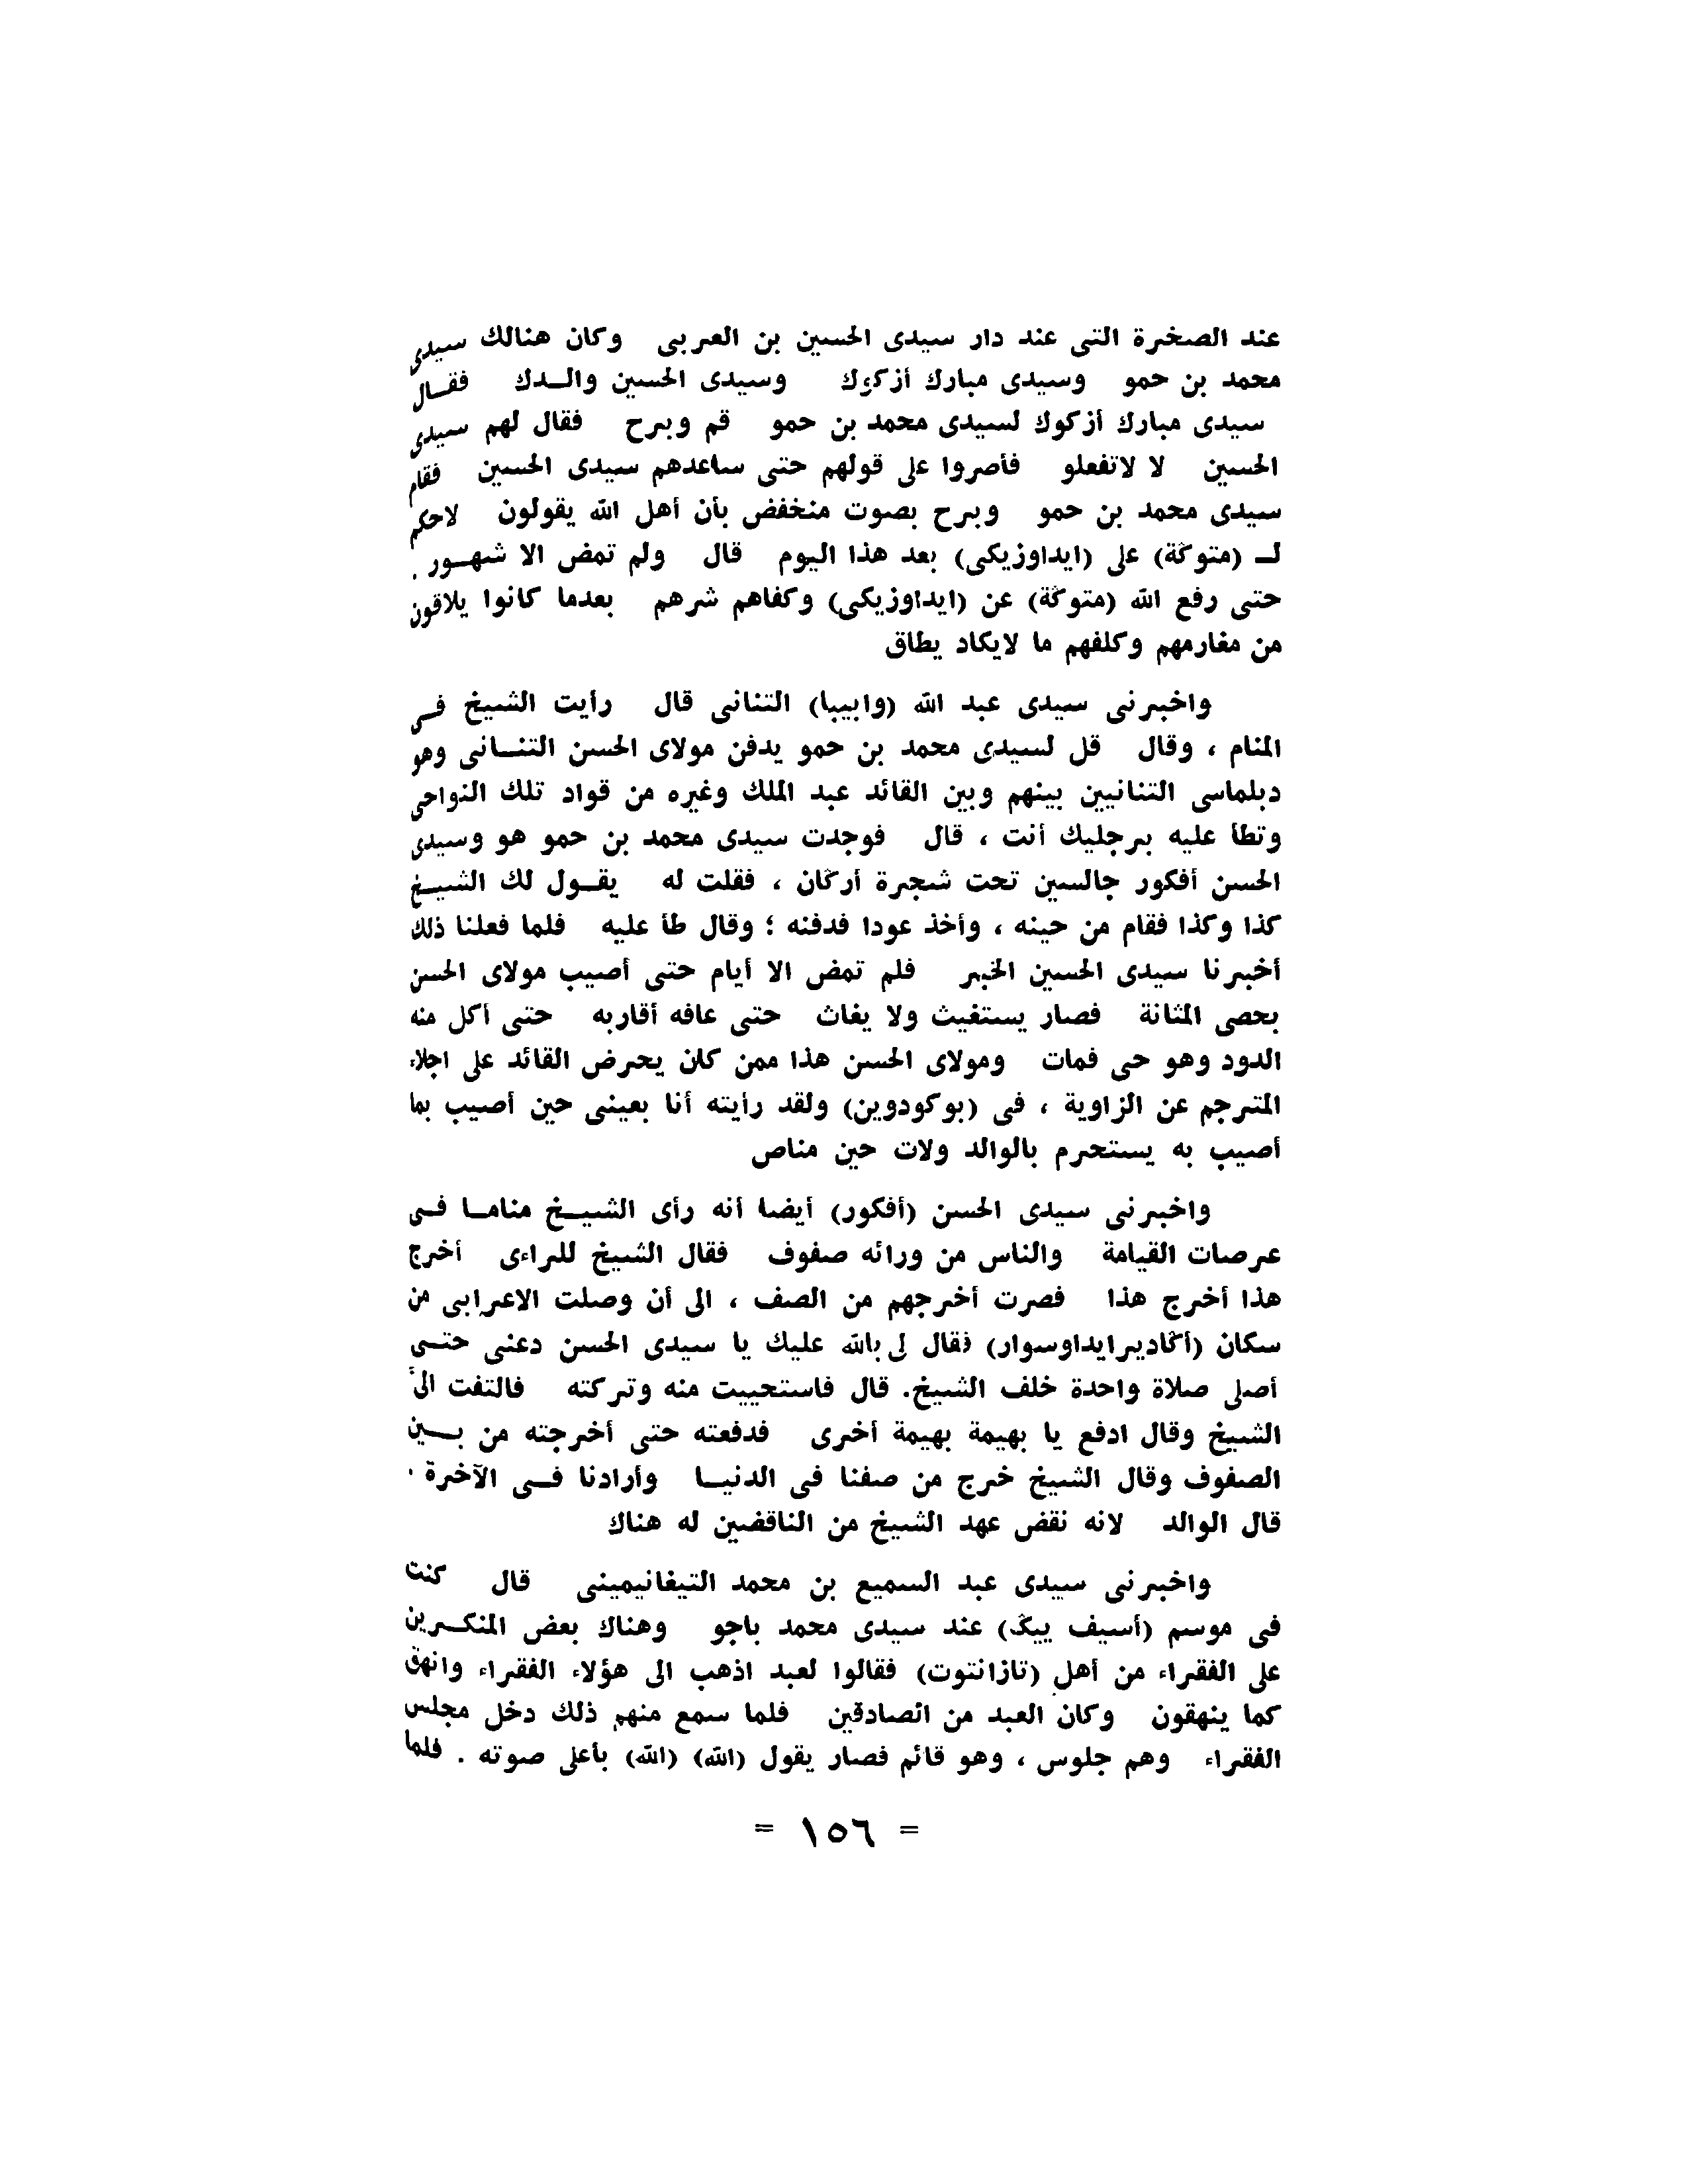 عند الصخرة التى عند دار سيدى الحسين بن العربى وكان هنالك سيدى
محمد بن حمو وسيدى مبارك أزكوك وسيدى الحسين والــدك فقــال
سيدى مبارك أزكوك لسيدى محمد بن حمو قم وبرح فقال لهم سيدى
الحسين لا لاتفعلو فأصروا على قولهم حتى ساعدهم سيدى الحسين فقام
سيدى محمد بن حمو وبرح بصوت منخفض بأن أهل الله يقولون لاحكم
لــ (متوݣة) على (ايداوزيكى) بعد هذا اليوم قال ولم تمض الا شهــور .
حتى رفع الله (متوݣة) عن (ايداوزيكى) وكفاهم شرهم بعدما كانوا يلاقون
من مغارمهم وكلفهم ما لايكاد يطاق
واخبرنى سيدى عبد الله (وابيبا) التنانى قال رأيت الشيخ فــى
المنام ، وقال قل لسيدى محمد بن حمو يدفن مولاى الحسن التنــانى وهو
دبلماسى التنانيين بينهم وبين القائد عبد الملك وغيره من قواد تلك النواحى
وتطأ عليه برجليك أنت ، قال فوجدت سيدى محمد بن حمو هو وسيدى
الحسن أفكور جالسين تحت شجرة أرݣان ، فقلت له يقــول لك الشيــخ
كذا وكذا فقام من حينه ، وأخذ عودا فدفنه ؛ وقال طأ عليه فلما فعلنا ذلك
أخبرنا سيدى الحسين الخبر فلم تمض الا أيام حتى أصيب مولاى الحسن
بحصى المثانة فصار يستغيث ولا يغاث حتى عافه أقاربه حتى أكل منه
الدود وهو حى فمات ومولاى الحسن هذا ممن كان يحرض القائد على اجلاء
المترجم عن الزاوية ، فى (بوكودوين) ولقد رأيته أنا بعينى حين أصيب بما
أصيب به يستحرم بالوالد ولات حين مناص
واخبرنى سيدى الحسن (أفكور) أيضا أنه رأى الشيــخ منامــا فــى
عرصات القيامة والناس من ورائه صفوف فقال الشيخ للراءى أخرج
هذا أخرج هذا فصرت أخرجهم من الصف ، الى أن وصلت الاعرابى من
سكان (أݣاديرايداوسوار) فقال لى بالله عليك يا سيدى الحسن دعنى حتــى
أصلى صلاة واحدة خلف الشيخ. قال فاستحييت منه وتركته فالتفت الى
الشيخ وقال ادفع يا بهيمة بهيمة أخرى فدفعته حتى أخرجته من بــين
الصفوف وقال الشيخ خرج من صفنا فى الدنيــا وأرادنا فــى الآخرة .
قال الوالد لانه نقض عهد الشيخ من الناقضين له هناك
واخبرنى سيدى عبد السميع بن محمد التيغانيمينى قال كنت
فى موسم (أسيف ييݣ) عند سيدى محمد باجو وهناك بعض المنكــرين
على الفقراء من أهل (تازانتوت) فقالوا لعبد اذهب الى هؤلاء الفقراء وانهق
كما ينهقون وكان العبد من الصادقين فلما سمع منهم ذلك دخل مجلس
الفقراء وهم جلوس ، وهو قائم فصار يقول (الله) (الله) بأعلى صوته . فلما
= ١٥٦ =